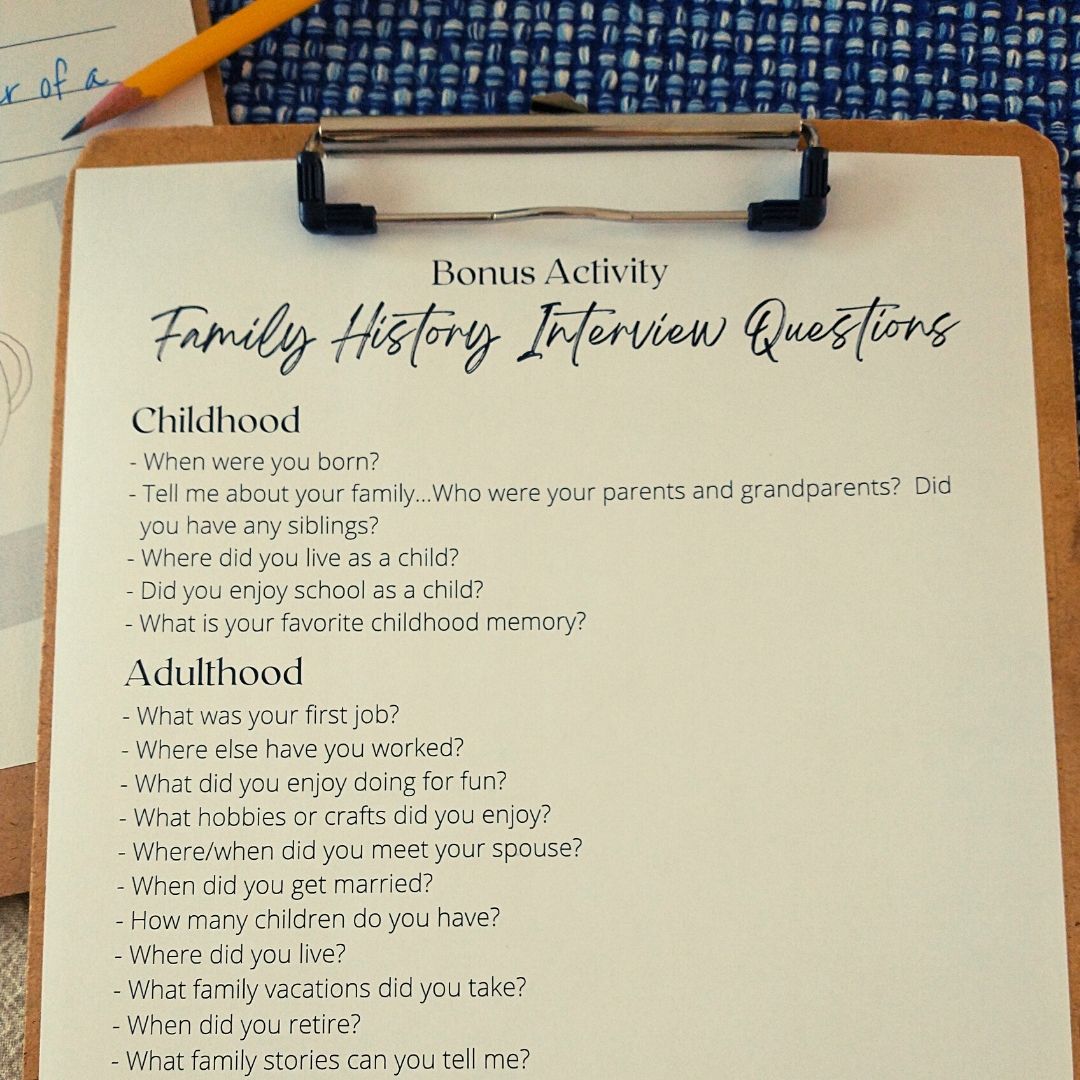 r of a
Bonus Activity
Family History Interview Questions
Childhood
- When were you born?
- Tell me about your family...Who were your parents and grandparents?  Did
you have any siblings?
- Where did you live as a child?
- Did you enjoy school as a child?
- What is your favorite childhood memory?
Adulthood
- What was your first job?
- Where else have you worked?
- What did you enjoy doing for fun?
- What hobbies or crafts did you enjoy?
- Where/when did you meet your spouse?
- When did you get married?
- How many children do you have?
- Where did you live?
- What family vacations did you take?
- When did you retire?
- What family stories can you tell me?